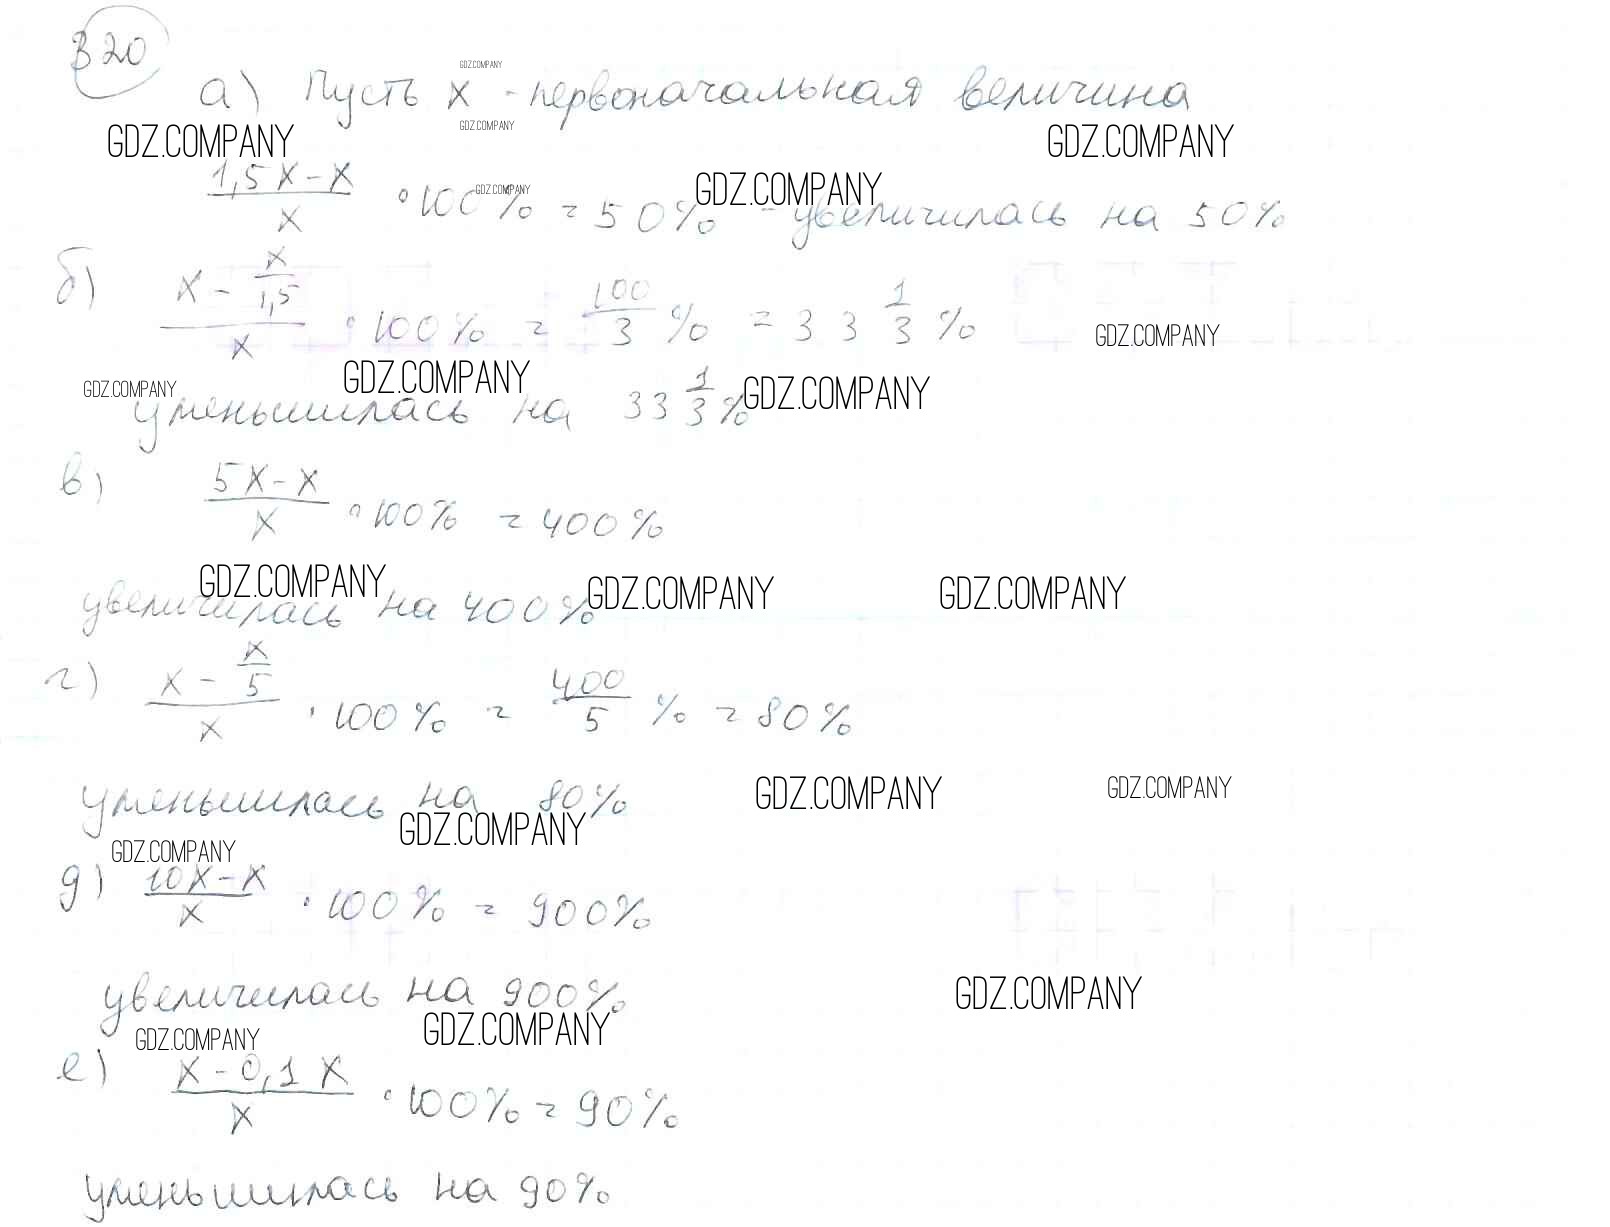 320
GDZ.COMPANY
а) Пусть x - первоначальная величина
GDZ.COMPANY
GDZ.COMPANY
GDZ.COMPANY
GDZ.COMPANY
GDZ.COMPANY
(1,5x-x)/x · 100% = 50% - увеличилась на 50%
б) (x - x/1,5)/x · 100% = 100/3 % = 33 1/3 %
GDZ.COMPANY
GDZ.COMPANY
GDZ.COMPANY
GDZ.COMPANY
уменьшилась на 33 1/3 %
в) (5x-x)/x · 100% = 400%
GDZ.COMPANY
GDZ.COMPANY
GDZ.COMPANY
увеличилась на 400%
г) (x - x/5)/x · 100% = 400/5 % = 80%
уменьшилась на 80%
GDZ.COMPANY
GDZ.COMPANY
GDZ.COMPANY
GDZ.COMPANY
д) (10x-x)/x · 100% = 900%
увеличилась на 900%
GDZ.COMPANY
GDZ.COMPANY
GDZ.COMPANY
е) (x-0,1x)/x · 100% = 90%
уменьшилась на 90%